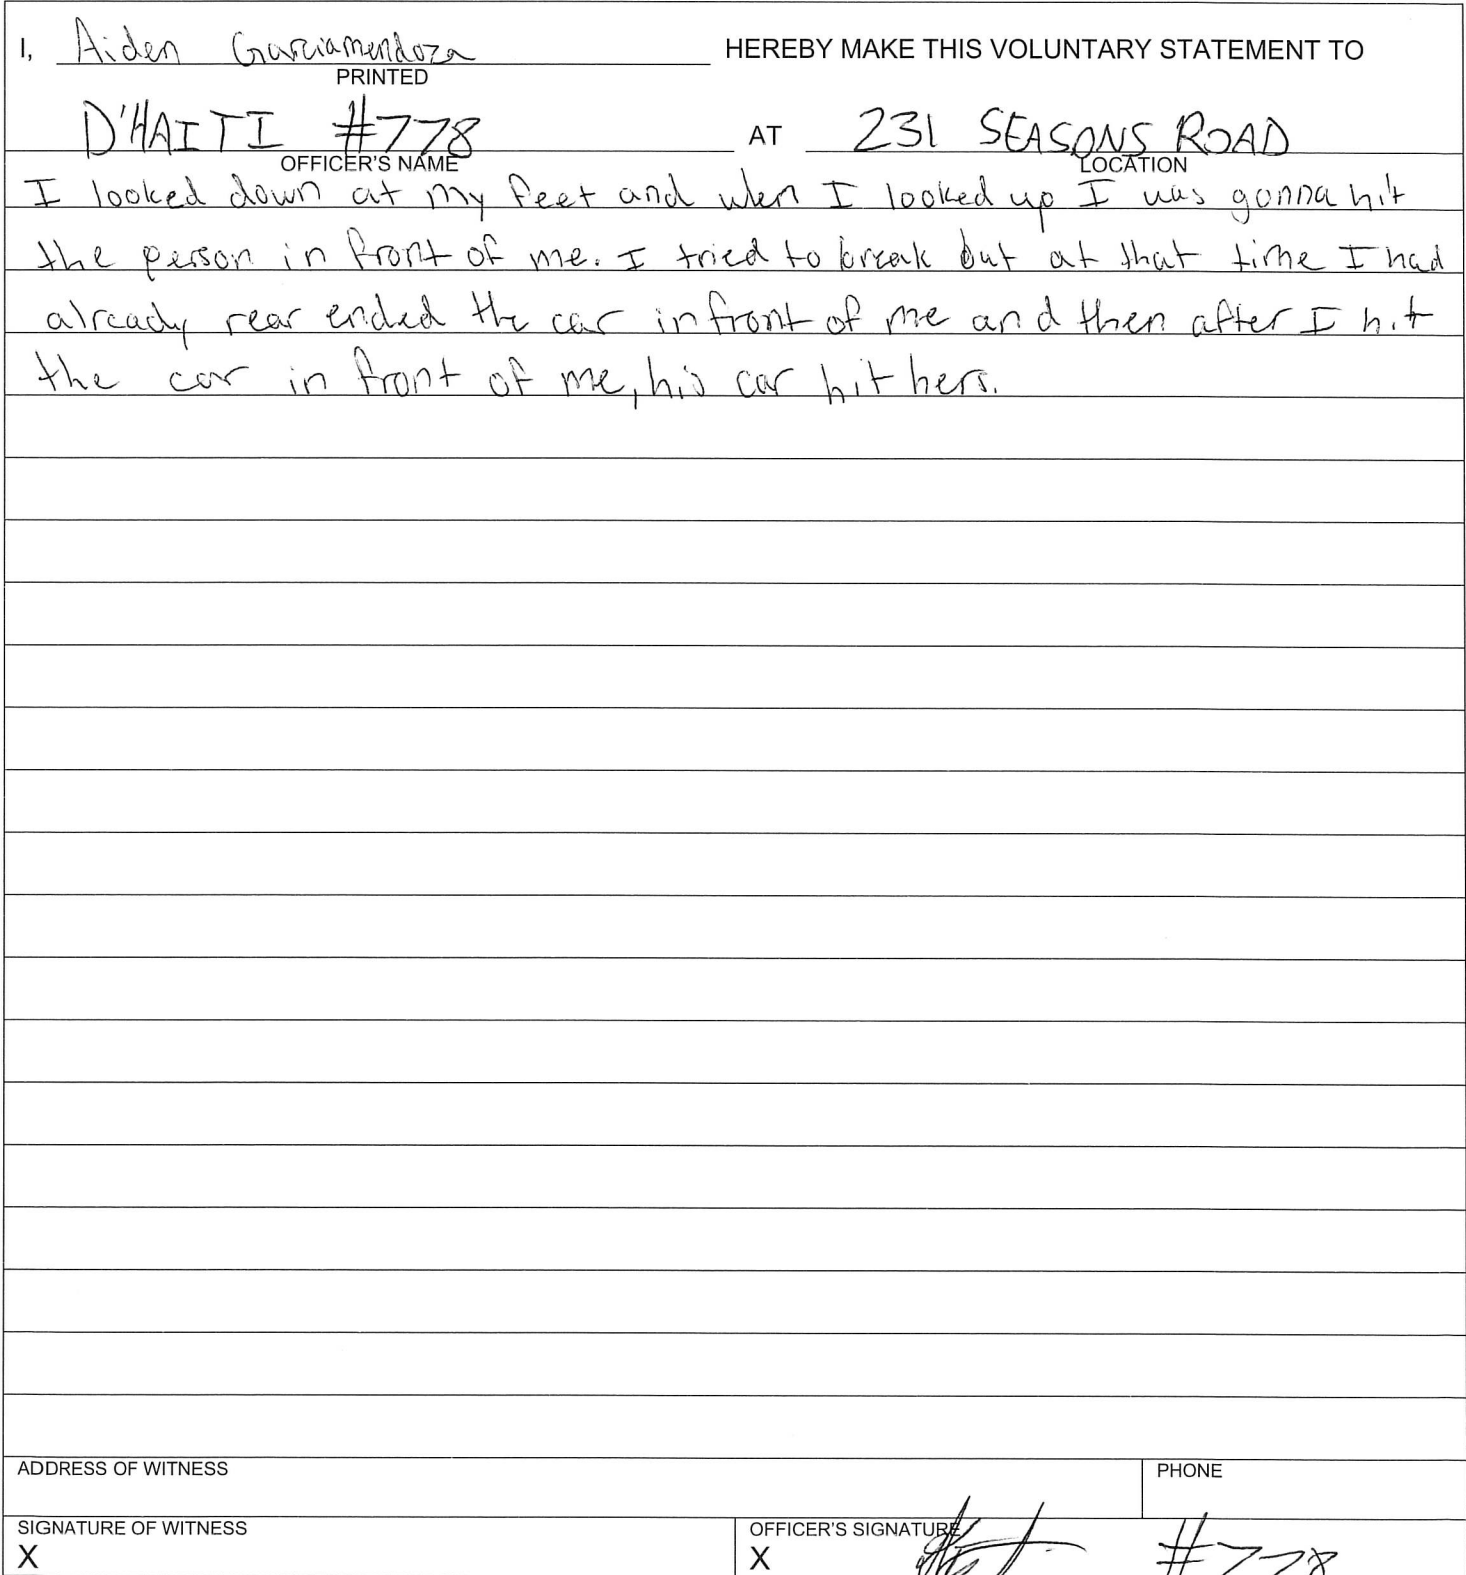 I, Aiden Garciamendoza HEREBY MAKE THIS VOLUNTARY STATEMENT TO
PRINTED
D'HAITI #778 AT 231 SEASONS ROAD
OFFICER'S NAME LOCATION
I looked down at my feet and when I looked up I was gonna hit
the person in front of me. I tried to break but at that time I had
already rear ended the car infront of me and then after I hit
the car in front of me, his car hit hers.
ADDRESS OF WITNESS PHONE
SIGNATURE OF WITNESS OFFICER'S SIGNATURE
X X #778